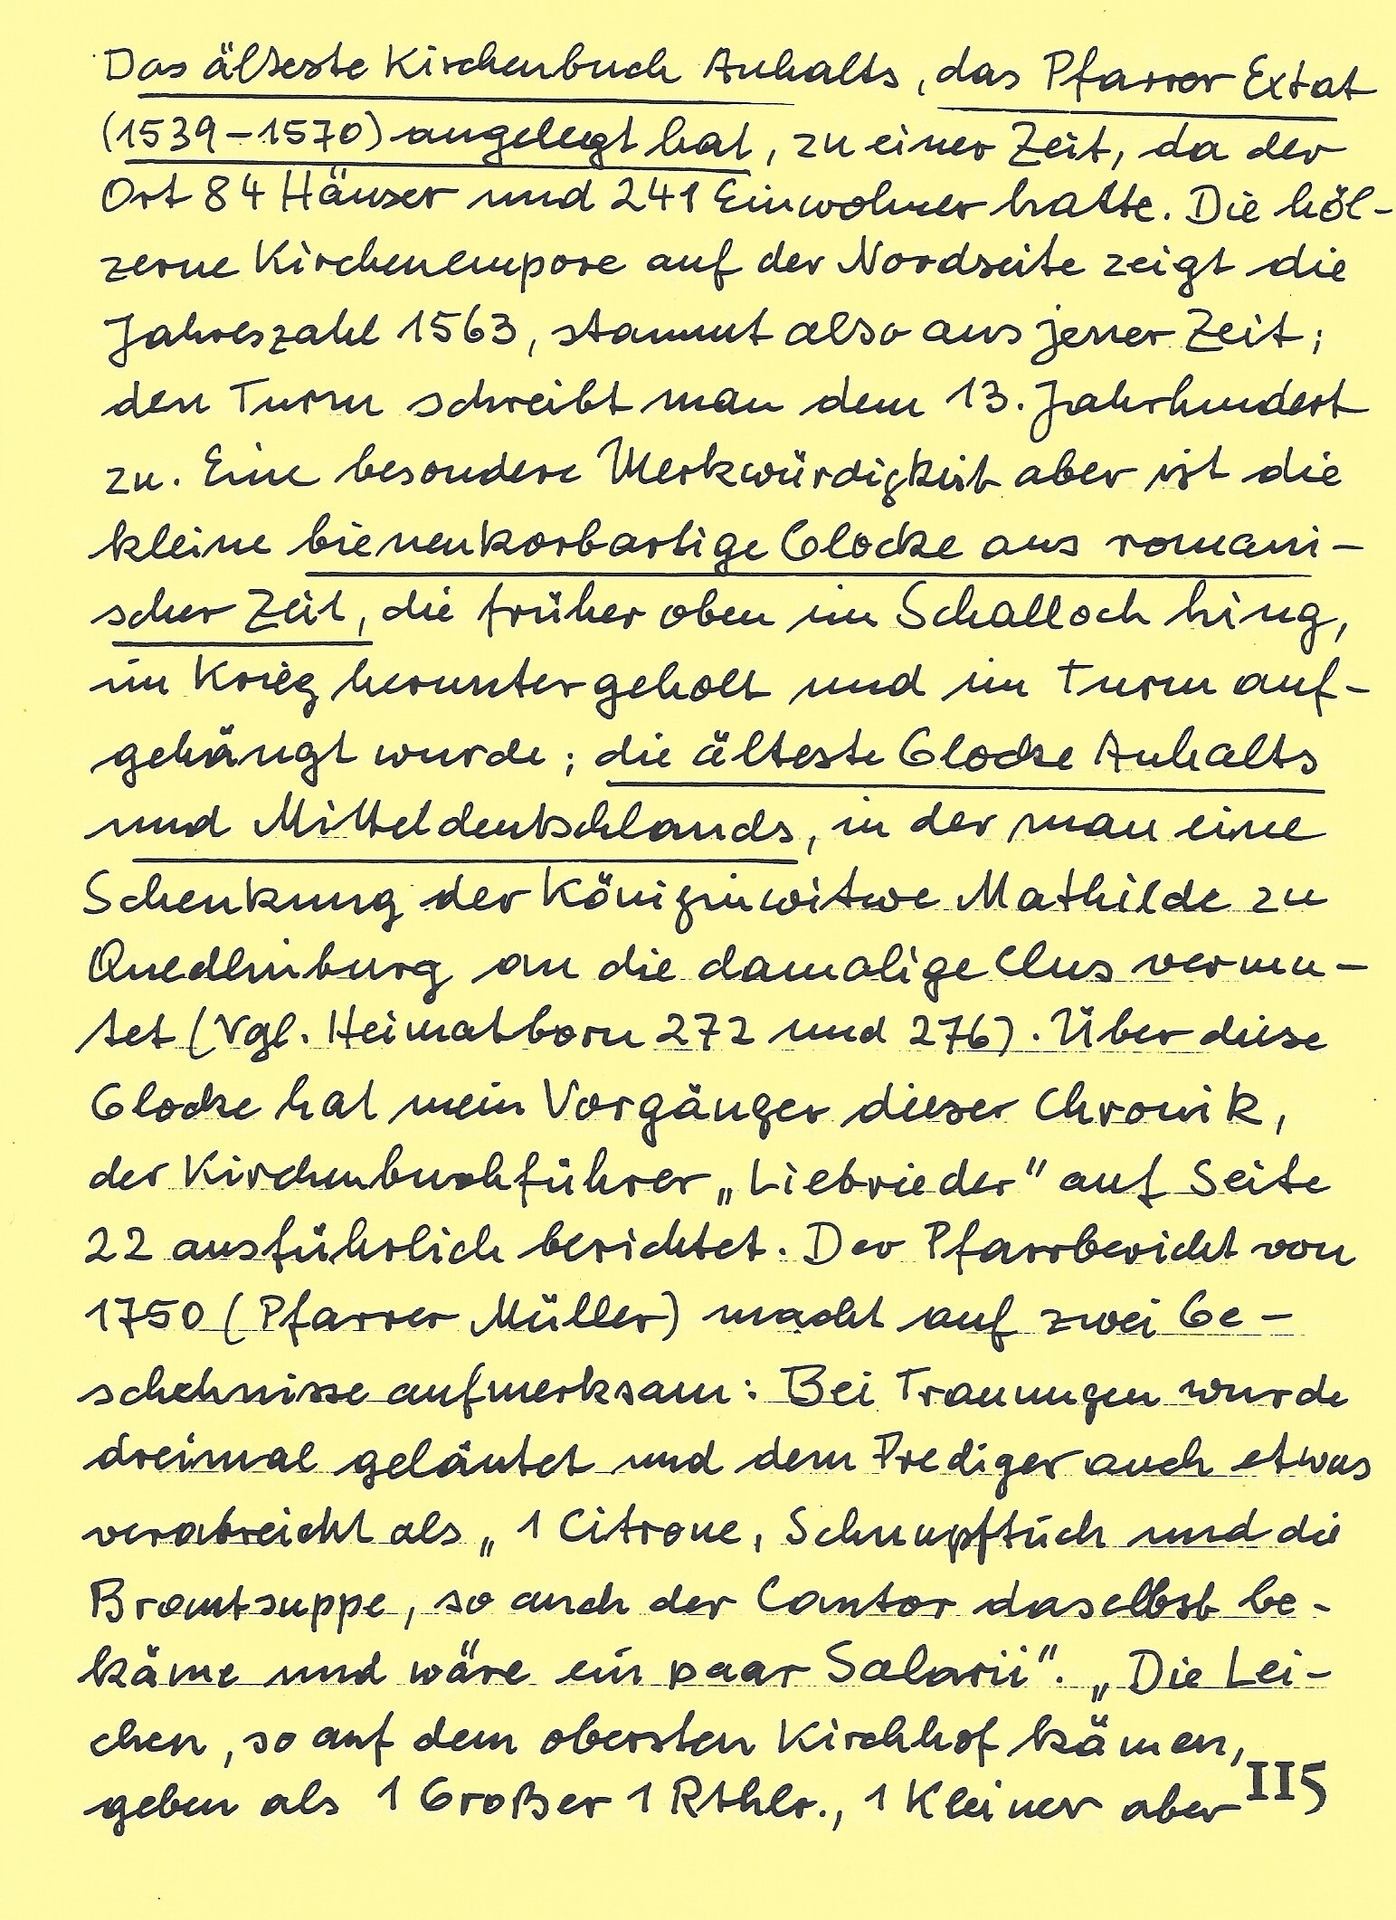 Das älteste Kirchenbuch Anhalts, das Pfarrer Extat
(1539-1570) angelegt hat, zu einer Zeit, da der
Ort 84 Häuser und 241 Einwohner hatte. Die höl-
zerne Kirchenempore auf der Nordseite zeigt die
Jahreszahl 1563, stammt also aus jener Zeit;
den Turm schreibt man dem 13. Jahrhundert
zu. Eine besondere Merkwürdigkeit aber ist die
kleine bienenkorbartige Glocke aus romani-
scher Zeit, die früher oben im Schalloch hing,
im Krieg heruntergeholt und im Turm auf-
gehängt wurde; die älteste Glocke Anhalts
und Mitteldeutschlands, in der man eine
Schenkung der Königinwitwe Mathilde zu
Quedlinburg an die damalige Clus vermu-
tet (Vgl. Heimatborn 272 und 276). Über diese
Glocke hat mein Vorgänger dieser Chronik,
der Kirchenbuchführer „Liebrieder" auf Seite
22 ausführlich berichtet. Der Pfarrbericht von
1750 (Pfarrer Müller) macht auf zwei Ge-
schehnisse aufmerksam: Bei Trauungen wurde
dreimal geläutet und dem Prediger auch etwas
verabreicht als „1 Citrone, Schnupftuch und die
Brautsuppe, so auch der Cantor daselbst be-
käme und wäre ein paar Salarii". „Die Lei-
chen, so auf dem obersten Kirchhof kämen,
geben als 1 Großer 1 Rthlr., 1 Kleiner aber
115